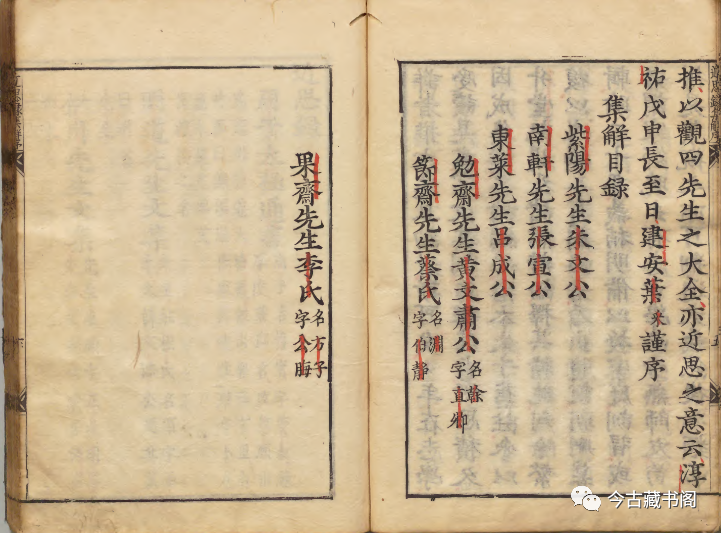 推以觀四先生之大全亦近思之意云淳
祐戊申長至日建安葉采謹序
集解目錄
紫陽先生朱文公
南軒先生張宣公
東萊先生呂成公
勉齋先生黃文肅公名榦字直卿
節齋先生蔡氏名淵字伯靜
果齋先生李氏名方子字公晦
今古藏书阁